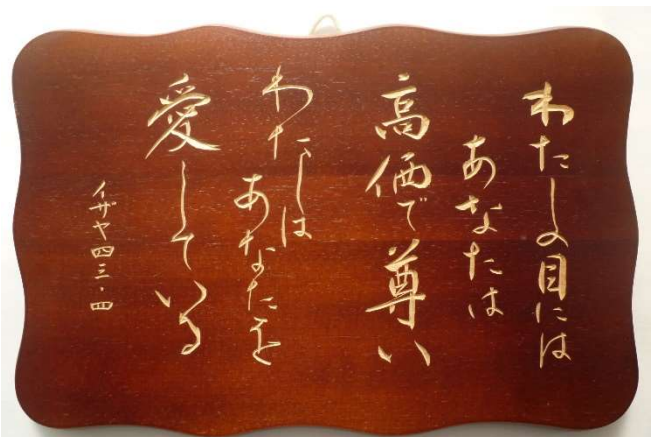 わたしの目には
あなたは
高価で尊い
わたしは
あなたを
愛している
イザヤ四三・四